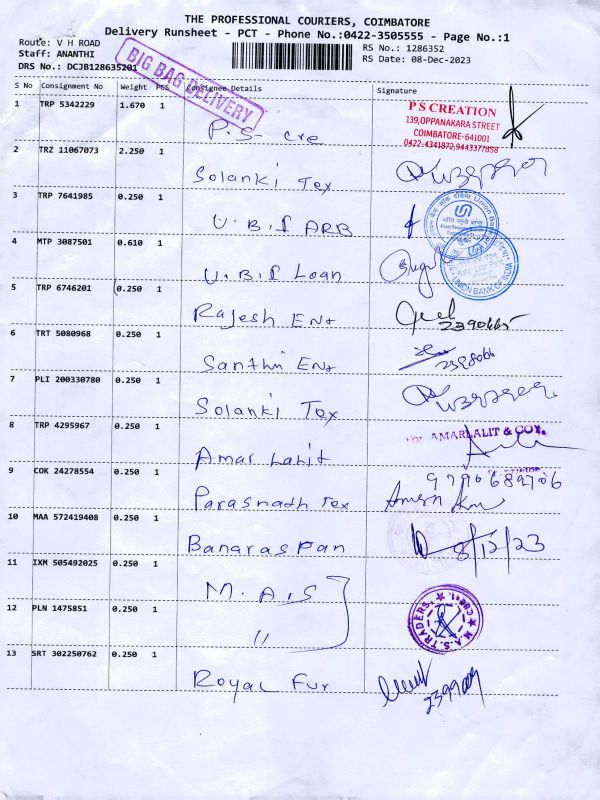 THE PROFESSIONAL COURIERS, COIMBATORE
Delivery Runsheet - PCT - Phone No.:0422-3505555 - Page No.:1
Route: V H ROAD
RS No.: 1286352
Staff: ANANTHI
RS Date: 08-Dec-2023
DRS No.: DCJB128635201
BIG BAG DELIVERY
S No Consignment No Weight PCS Consignee Details Signature
1 TRP 5342229 1.670 1 P.S- cre
P S CREATION
139,OPPANAKARA STREET
COIMBATORE-641001
0422-4341872,9443377858
2 TRZ 11067073 2.250 1 Solanki Tex
3 TRP 7641985 0.250 1 U.B.I ARB
4 MTP 3087501 0.610 1 U.B.I Loan
UNION BANK OF INDIA
5 TRP 6746201 0.250 1 Rajesh Ent
6 TRT 5080968 0.250 1 Santhi Ent
7 PLI 200330780 0.250 1 Solanki Tex
8 TRP 4295967 0.250 1 Amar Lalit
For AMARLALIT & COY.
9 COK 24278554 0.250 1 Parasnath Tex
9790689706
10 MAA 572419408 0.250 1 Banaras Pan 8/12/23
11 IXM 505492025 0.250 1 M.A.S
12 PLN 1475851 0.250 1 "
M.A.S. TRADERS
13 SRT 302250762 0.250 1 Royal Fur